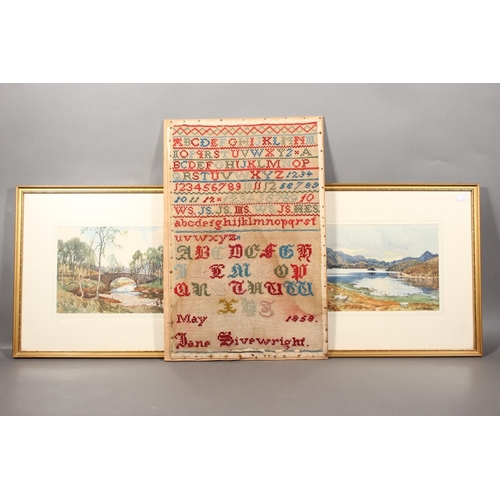 ABCDEFGHIJKLMN
OPQRSTUVWXYZ × A
BCDEFGHIJKLMOP
QRSTUVWXYZ 1234
1234567891112 6789
10 11 12 × 10
WS. JS. JS. WS. JS. 
abcdefghijklmnopqrst
uvwxyz×
ABCDEFGH
LMOP
QRSTUVW
XYZ
May 1858.
Jane Sivewright.